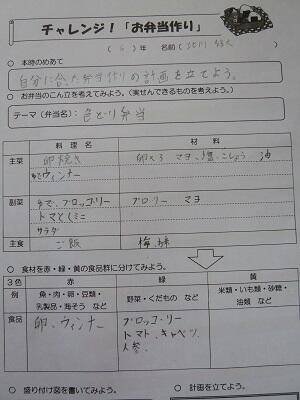 チャレンジ！「お弁当作り」
（ 6 ）年 名前（
○ 本時のめあて
自分に合った弁当作りの計画を立てよう。
○ お弁当のこん立を考えてみよう。（実せんできるものを考えよう。）
テーマ（弁当名）： 色どり弁当
料理名 材料
主菜 卵焼き 卵×3 マヨ 塩、こしょう 油
ウィンナー
副菜 ゆで、ブロッコリー ブロッコリー マヨ
トマト（ミニ
サラダ
主食 ご飯 梅、
○ 食材を赤・緑・黄の食品群に分けてみよう。
3色 赤 緑 黄
例 魚・肉・卵・豆類・乳製品・海そう など 野菜・くだもの など 米類・いも類・砂糖・油類 など
食品 卵、ウィンナー ブロッコリー
トマト、キャベツ、
人参、
○ 盛り付け図を書いてみよう。 ○ 計画を立てよう。